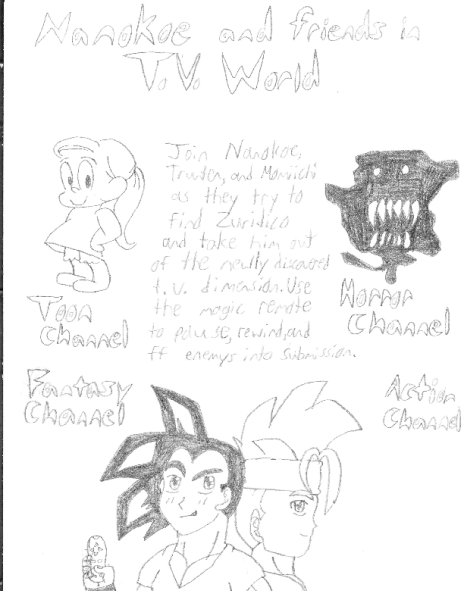 Nanokoe and friends in
T.V. World
Join Nanokoe,
Trusten, and Moniichi
as they try to
find Zuridico
and take him out
of the newly discovered
t.v. dimension. Use
the magic remote
to pause, rewind, and
ff enemys into submission.
Toon
Channel
Horror
Channel
Fantasy
Channel
Action
Channel